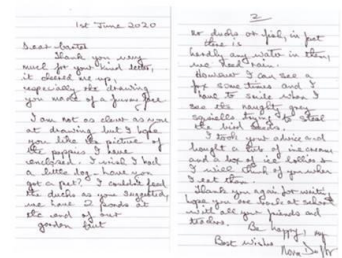 1st June 2020
Dear
Thank you very
much for your kind letter,
it cheered me up,
especially the drawing
you made of a funny face
I am not as clever as you
at drawing but I hope
you like the picture of
the puppies I have
enclosed. I wish I had
a little dog - have you
got a pet? I couldn't feed
the ducks as you suggested,
we have 2 ponds at
the end of our
garden but
2
no ducks or fish, in fact
there is
hardly any water in them,
we need rain.
However I can see a
fox some times and I
have to smile when I
see the naughty grey
squirrels trying to steal
the birds
I took your advice and
bought a tub of ice cream
and a box of ice lollies so
I will think of you when
I eat them
Thank you again for
hope you are back at school
with all your friends and
teachers.
Be happy,
Best wishes
Nora